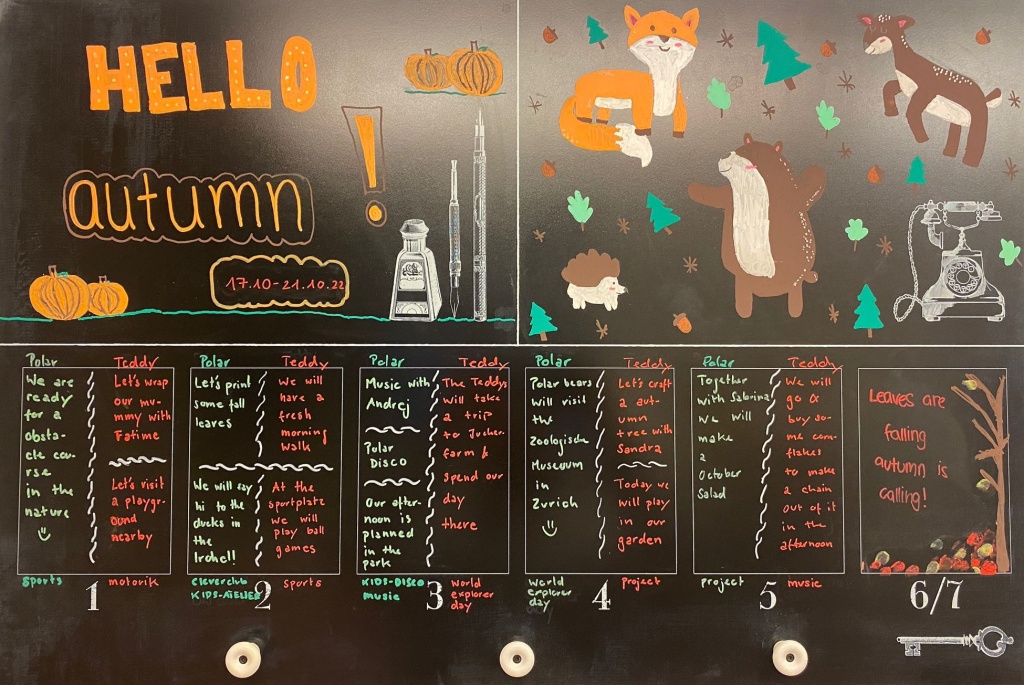 HELLO
autumn
!
17.10-21.10.22
Polar
We are
ready
for a
obsta-
cle cou-
rse
in the
nature
Teddy
Let's wrap
our mu-
mmy with
Fatime
Let's visit
a playgr-
ound
nearby
sports
motorik
1
Polar
Let's print
some fall
leaves
We will say
hi to the
ducks in
the
Irchel!
Teddy
We will
have a
fresh
morning
walk
At the
sportplatz
we will
play ball
games
cleverclub
KIDS-ATELIER
sports
2
Polar
Music with
Andrej
Polar
Disco
Our after-
noon is
planned
in the
park
Teddy
The Teddys
will take
a trip
to Jucker-
farm &
spend our
day
there
KIDS-DISCO
music
world
explorer
day
3
Polar
Polar bears
will visit
the
Zoologische
Museuum
in
Zurich
Teddy
Let's craft
a aut-
umn
tree with
Sandra
Today we
will play
in our
garden
world
explorer
day
project
4
Polar
Together
with Sabrina
we will
make
a
October
Salad
Teddy
We will
go &
buy so-
me corn-
flakes
to make
a chain
out of it
in the
afternoon
project
music
5
Leaves are
falling
autumn is
calling!
6/7